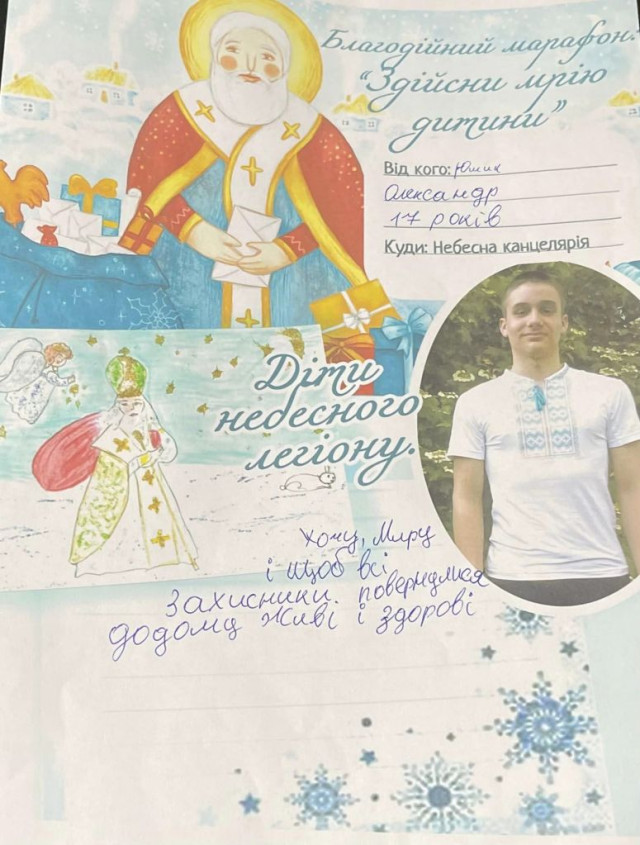 Благодійний марафон.
"Здійсни мрію
дитини"
Від кого: Юшик
Олександр
17 років
Куди: Небесна канцелярія
Діти
небесного
легіону.
Хочу, Миру
і щоб всі
Захисники повернулися
додому живі і здорові